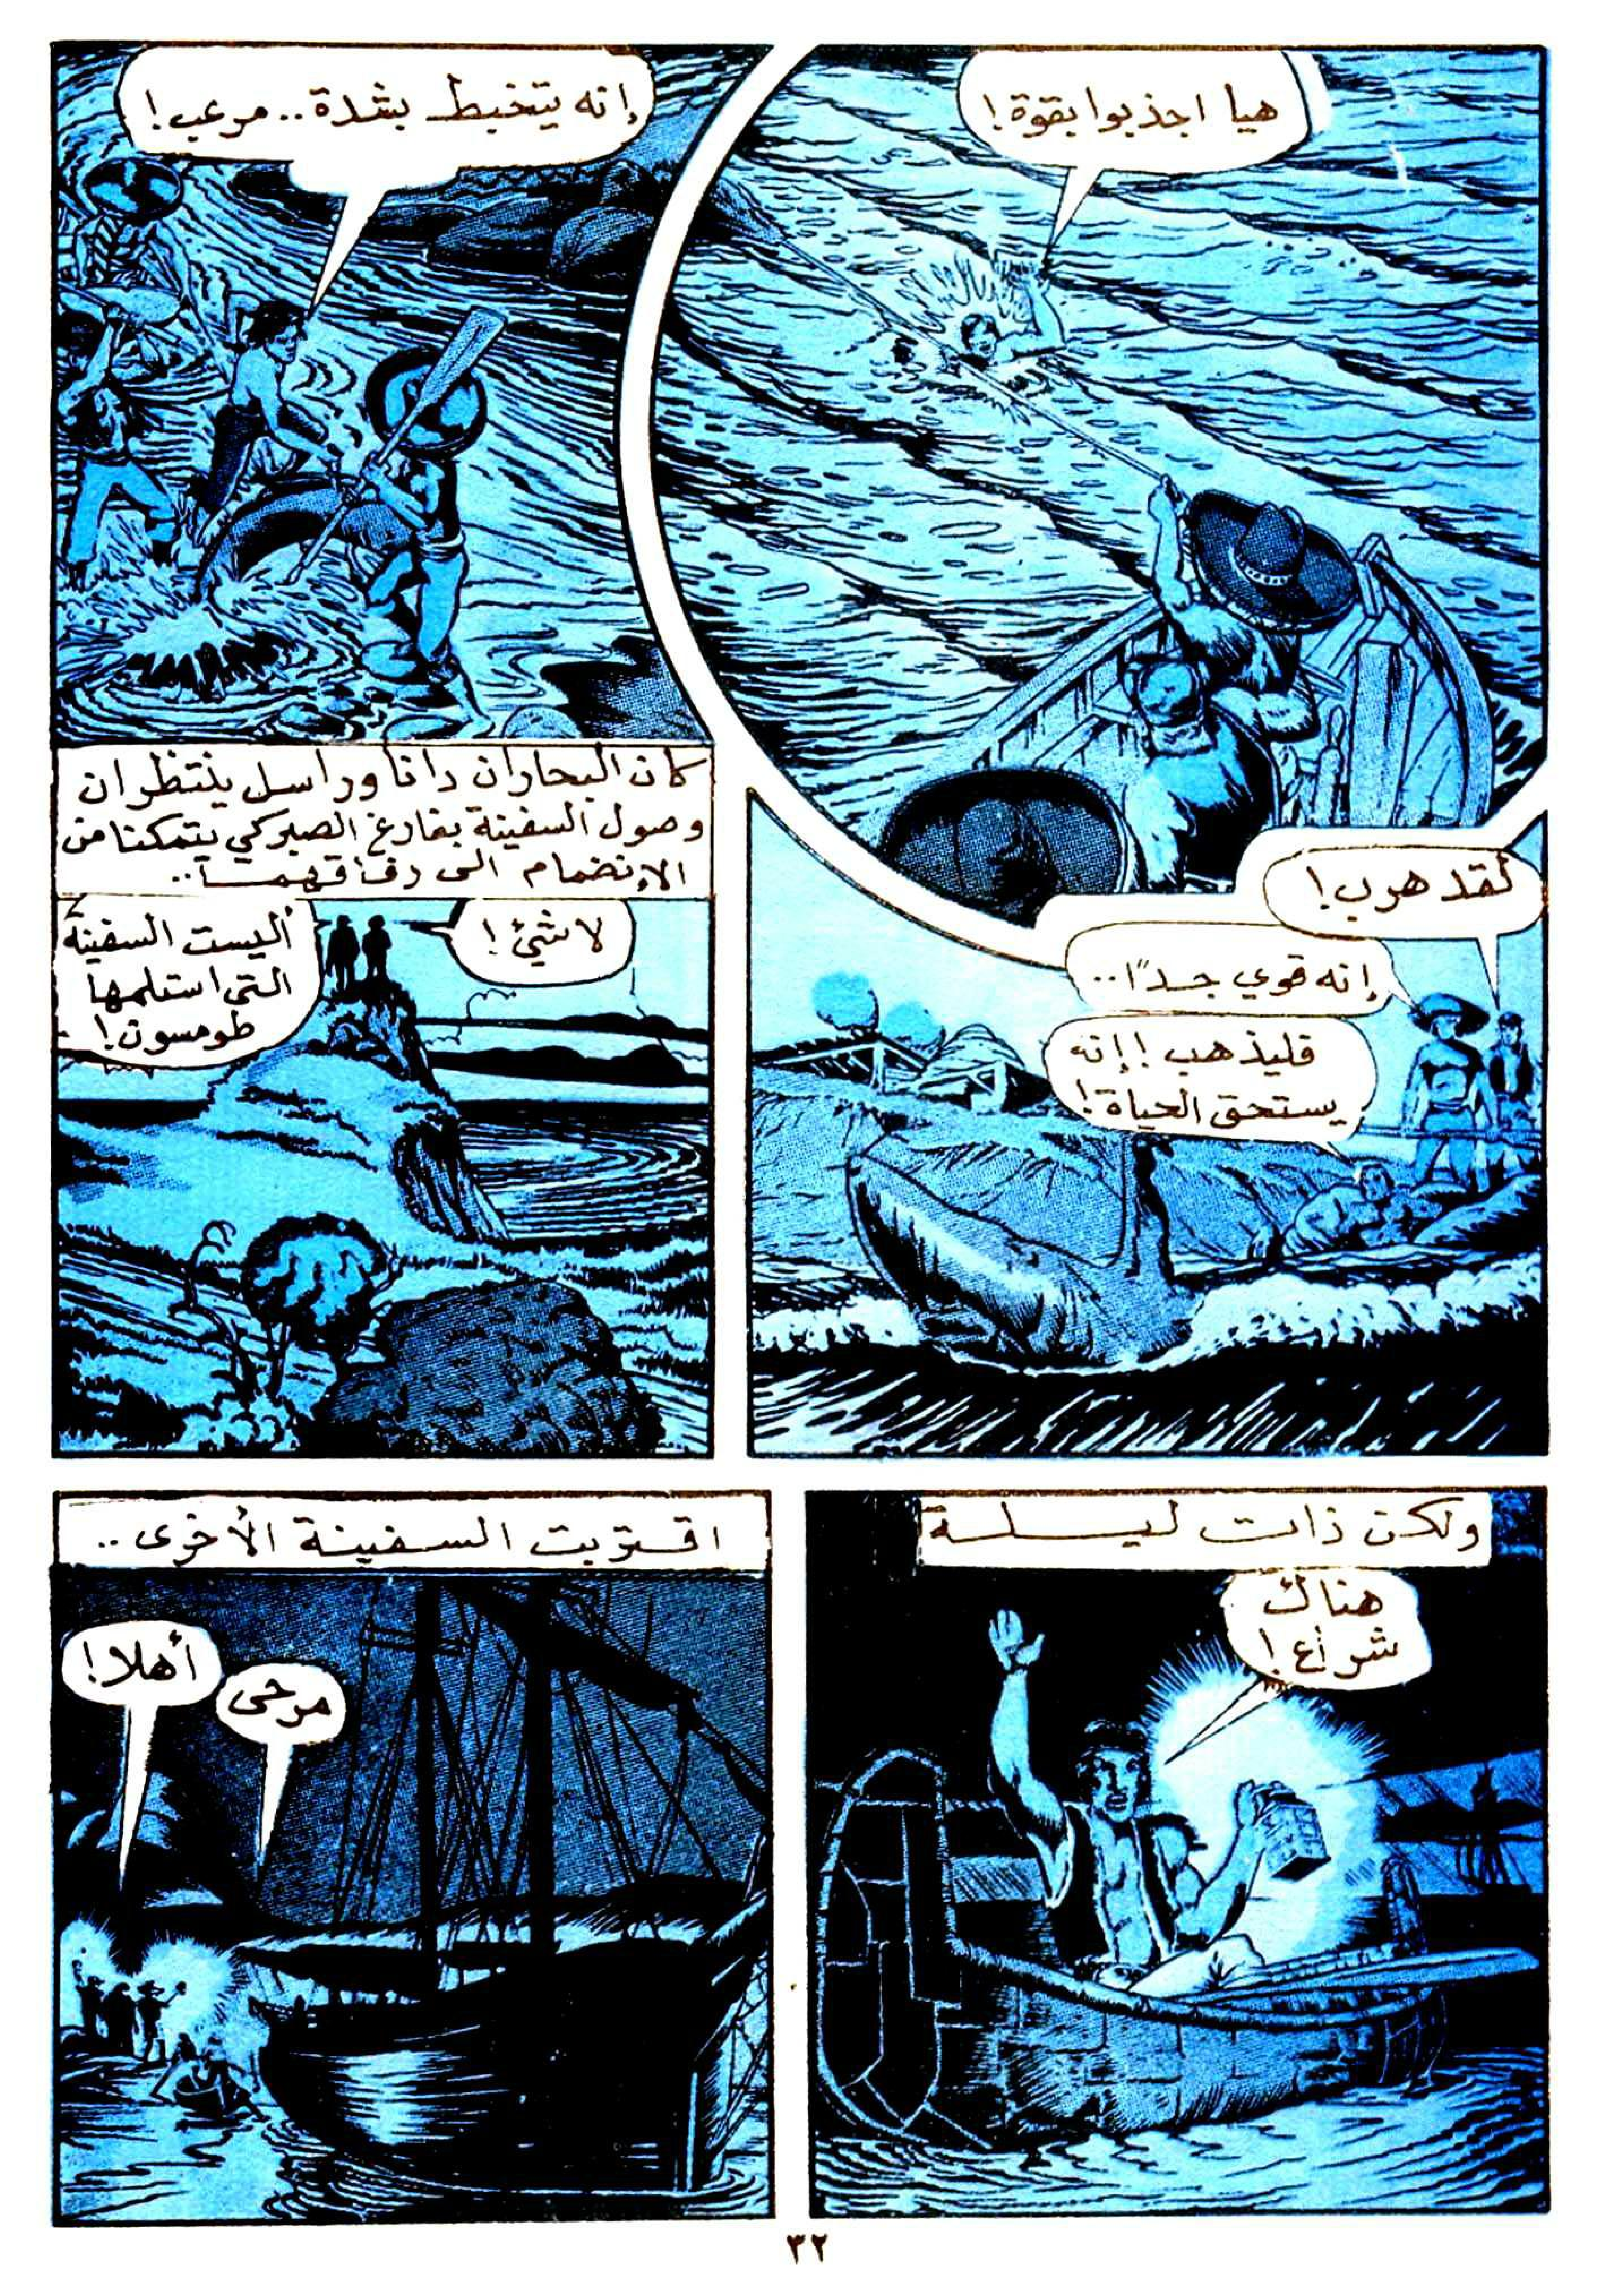 هيا اجذبوا بقوة!
إنه يتخبط بشدة.. مرعب!
لقد هرب!
إنه قوي جدًا..
فليذهب! إنه
يستحق الحياة!
كان البحاران دانا وراسل ينتظران
وصول السفينة بفارغ الصبر كي يتمكنا من
الإنضمام الى رفاقهما..
لاشئ!
أليست السفينة
التى استلمها
طومسون!
ولكن ذات ليلة
هناك
شراع!
اقتربت السفينة الأخرى..
مرحى
أهلا!
٣٢